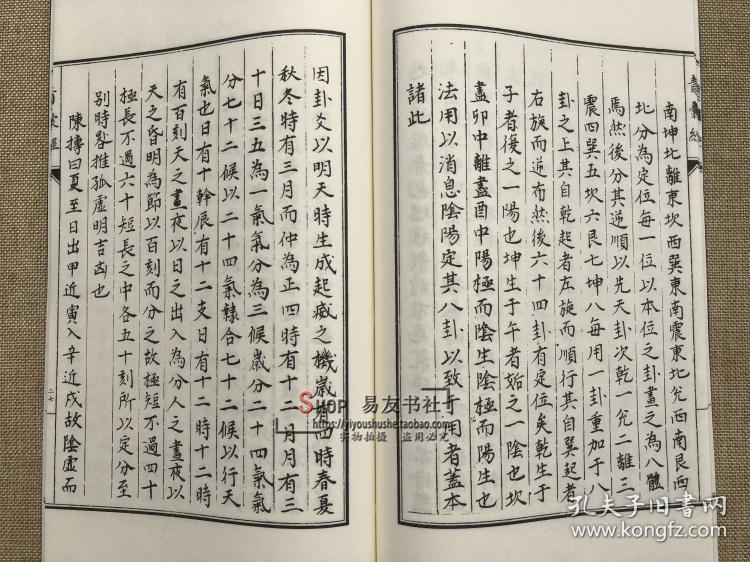 南坤北離東坎西巽東南震東北兊西南艮西
北分為定位每一位以本位之卦畫之為八體
焉然後分其逆順以先天卦次乾一兊二離三
震四巽五坎六艮七坤八每用一卦重加于八
卦之上其自乾起者左旋而順行其自巽起者
右旋而逆布然後六十四卦有定位矣乾生于
子者復之一陽也坤生于午者姤之一陰也坎
盡卯中離盡酉中陽極而陰生陰極而陽生也
法用以消息陰陽定其八卦以致于用者蓋本
諸此
因卦爻以明天時生成起歲之機歲四時春夏
秋冬時有三月而仲為正四時有十二月月有三
十日三五為一氣氣分為三候歲分二十四氣氣
分七十二候以二十四氣隸合七十二候以行天
氣也日有十幹辰有十二支日有十二時十二時
有百刻天之晝夜以日之出入為分人之晝夜以
天之昏明為節以百刻而分之故極短不過四十
極長不過六十短長之中各五十刻所以定分至
別時畧推孤虛明吉凶也
陳摶曰夏至日出甲近寅入辛近戌故陰虛而
二七
SHOP 易友书社
https://yiyoushushe.taobao.com/
实物拍摄 盗用必究
孔夫子旧书网
www.kongfz.com